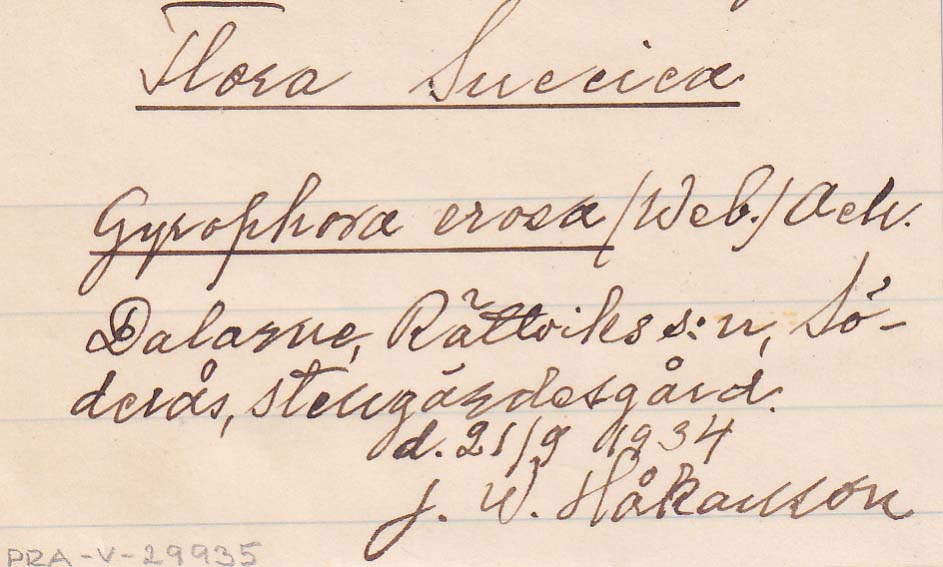 Flora Suecica
Gyrophora erosa /Web./ Ach.
Dalarne, Rättviks s:n, Sö-
derås, stengärdesgård.
d. 21/9 1934
J. W. Håkanson
PRA-V-29935